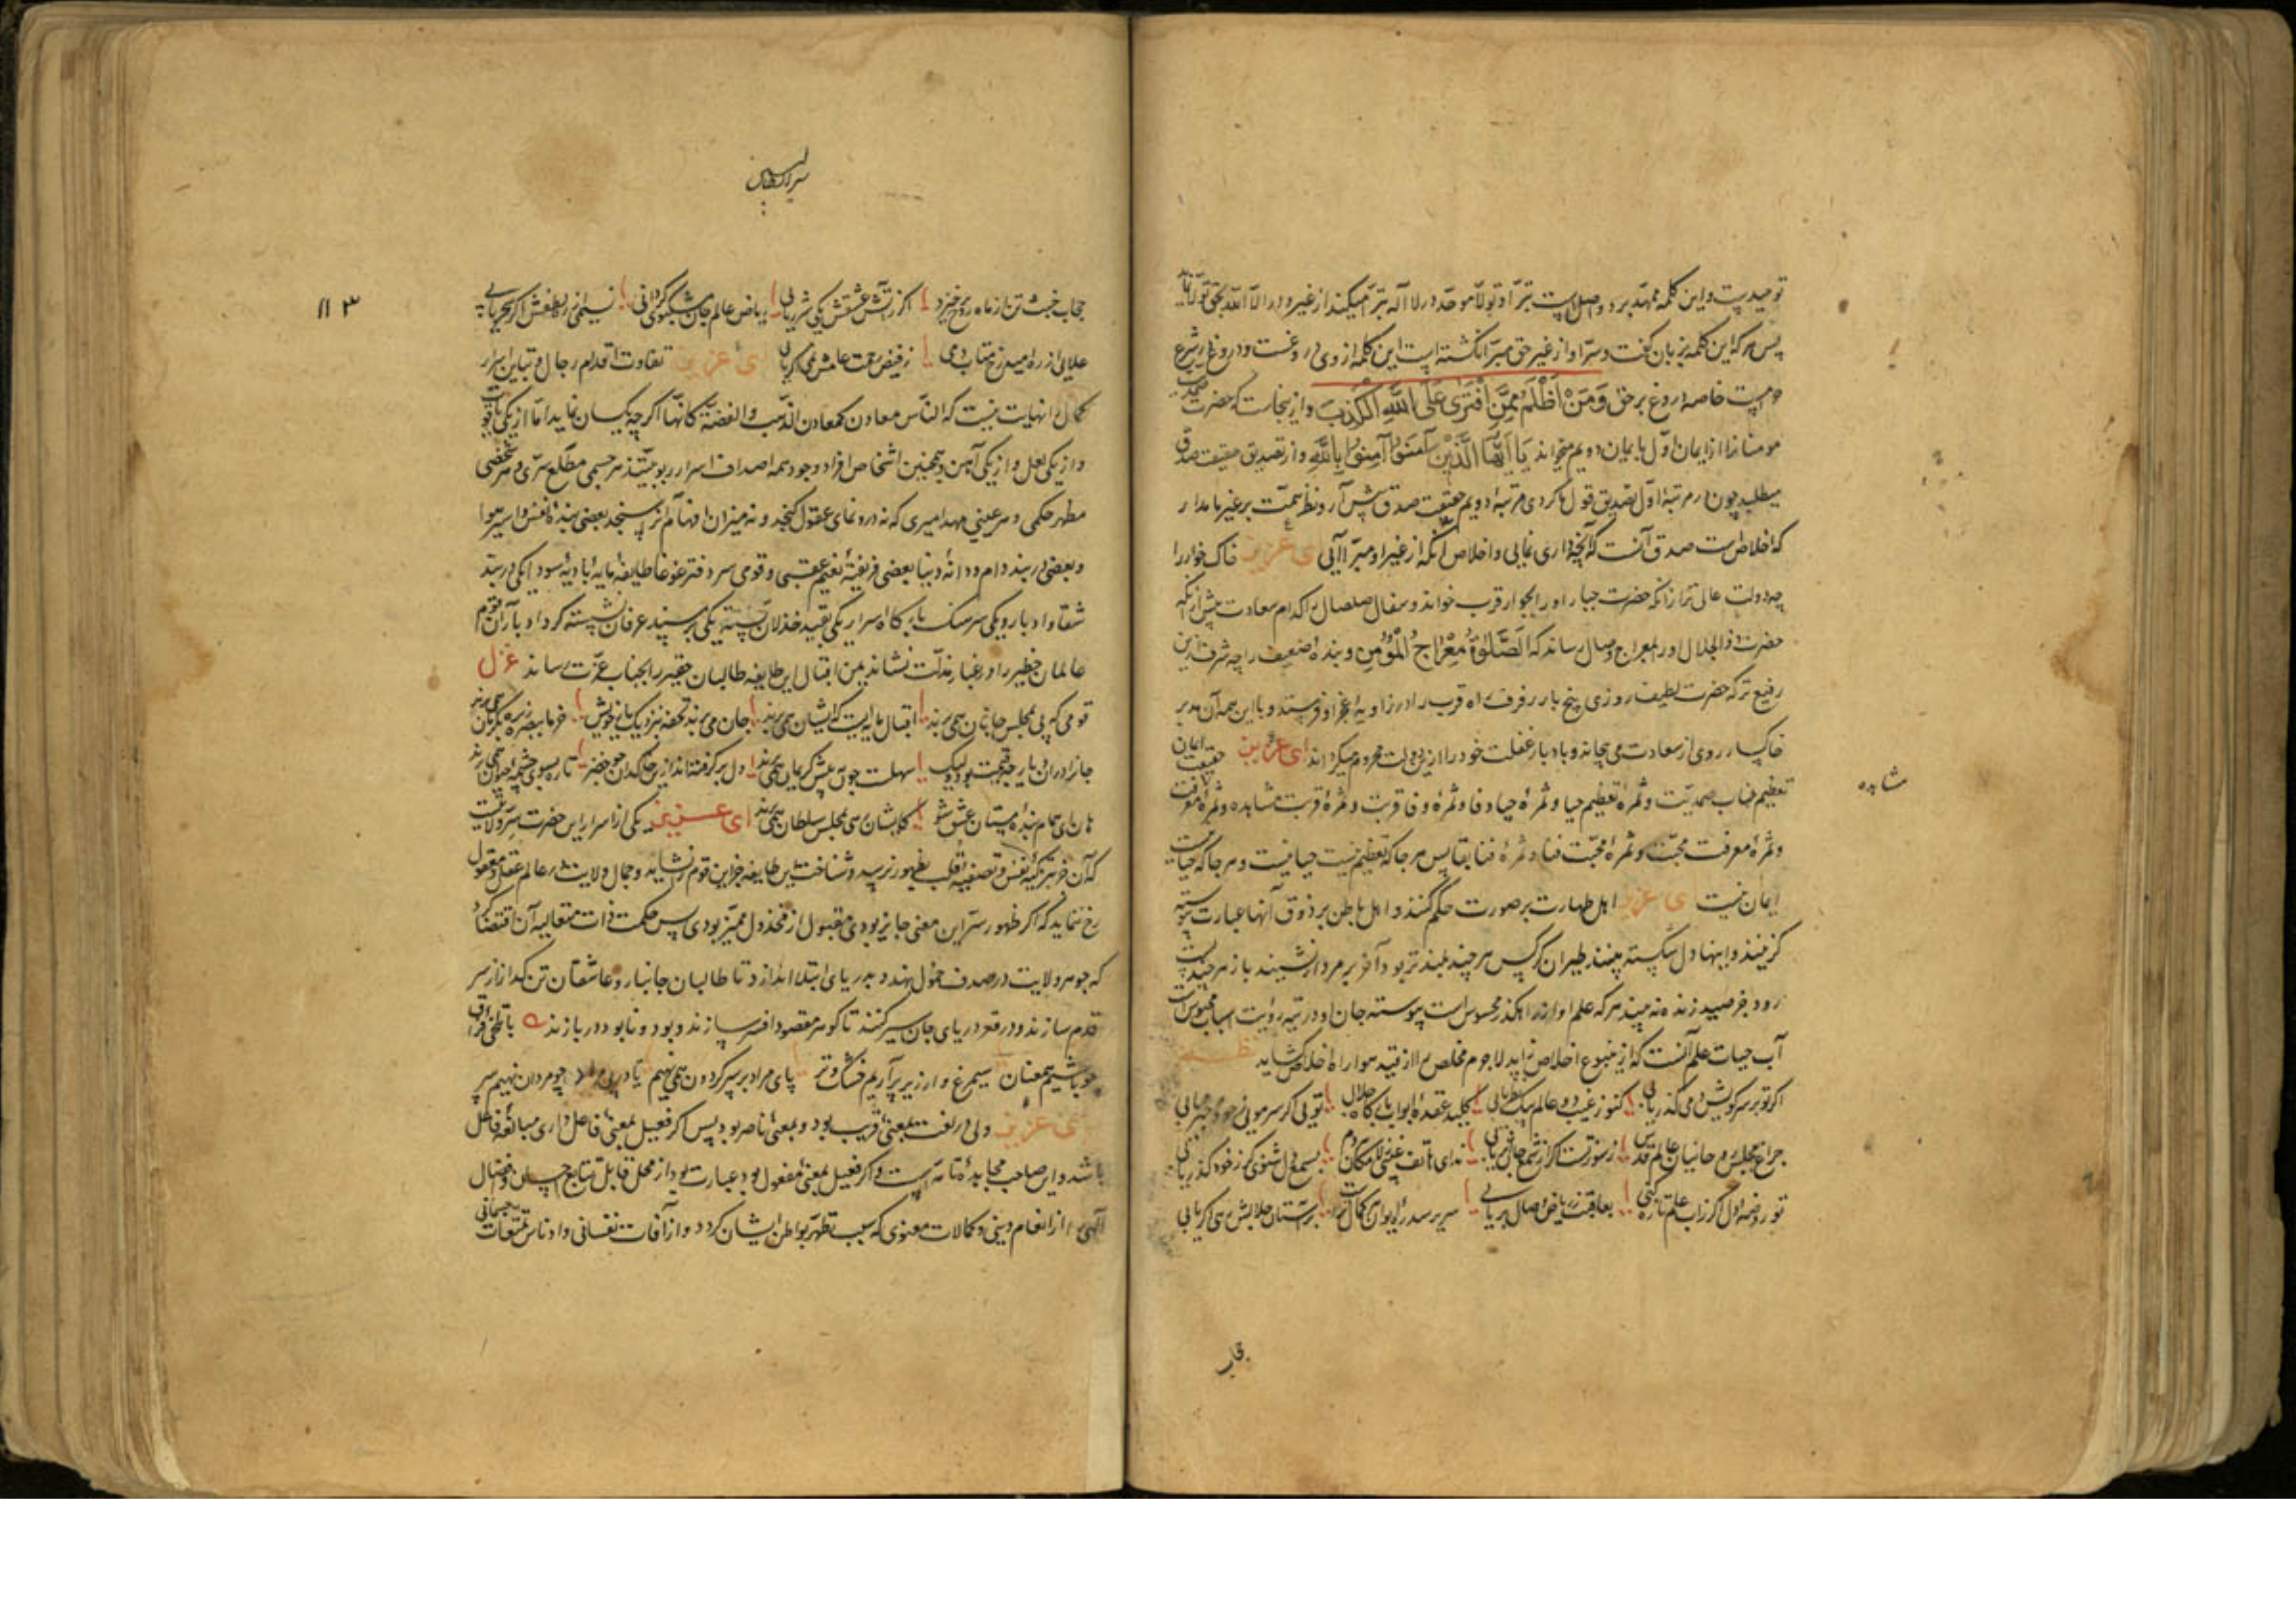 توحیدست و این کلمه ممهد بر دو اصل است تبرّا و تولّا موحّد در لا اله تبرّا میکند از غیر و در الا الله بحق تولّا
پس هر که این کلمه بزبان گفت و سرّ او از غیر حق مبرّا نگشته است این کلمه از وی دروغست و دروغ در شرع
حرامست خاصه دروغ بر حق وَمَنْ اَظْلَمُ مِمَّنِ افْتَرَى عَلَى اللهِ الْكَذِبَ و ازینجاست که حضرت صمدیت
مومنانرا از ایمان اوّل بایمان دویم میخواند یَا اَیُّهَا الَّذِیْنَ آمَنُوْا آمِنُوْا بِاللهِ و از تصدیق حقیقت صدق
میطلبد چون در مرتبۀ اوّل تصدیق قول کردی در مرتبۀ دویم حقیقت صدق پیش آر و نظر همّت بر غیر ما مدار
که اخلاص است صدق آنست که آنچه داری نمایی و اخلاص آنکه از غیر او مبرّا آیی ای عزیز خاک خوار را
چه دولت عالی تر ازانکه حضرت جبار او را بجوار قرب خواند و سفال صلصال را کدام سعادت بیش ازانکه
حضرت ذوالجلال او را بمعراج وصال رساند که اَلصَّلٰوةُ مِعْرَاجُ الْمُؤْمِنِ و بندۀ ضعیف را چه شرف ازین
رفیع تر که حضرت لطیف روزی پنج بار رفرف راه قرب را در زاویۀ عجز او فرستد و با این همه آن مدبر
خاکسار روی از سعادت می پیچاند و بادبار غفلت خود را ازین دولت محروم میگرداند ای عزیز حقیقت ایمان
تعظیم جناب صمدیّت و ثمرۀ تعظیم حیا و ثمرۀ حیا وفا و ثمرۀ وفا قربت و ثمرۀ قربت مشاهده و ثمرۀ معرفت
مشاهده
و ثمرۀ معرفت محبّت و ثمرۀ محبّت فنا و ثمرۀ فنا بقا پس هر جا که تعظیم نیست حیا نیست و هر جا که حیا نیست
ایمان نیست ای عزیز اهل طهارت بر صورت حکم کنند و اهل باطن بر ذوق آنها عبارت
گزینند و اینها دل شکسته بینند طیران کرکس هر چند بلندتر بود آخر بر مردار نشیند باز هر چند پست
رود جز صید زنده نه بیند هر که علم او از راهگذر محسوس است پیوسته جان او در تیه رؤیت اسباب محبوس است
آب حیات علم آنست که از ینبوع اخلاص زاید لاجرم مخلص را از قید هوا راه خلاص گشاید نظم
اگر تو بر سر کویش دمی گذر یابی کنوز غیب دو عالم بیک نظر یابی کلید عقدۀ ابواب بارگاه جلال تویی گر سر مویی ز خود خبر یابی
چراغ مجلس روحانیان عالم قدس ز سوز تست گر از شمع جان اثر یابی ندای هاتف غیبی ز لامکان هر دم بسمع دل شنوی گر ز خود گذر یابی
تو روضۀ دل اگر ز آب علم تازه کنی بعاقبت ز ریاض وصال بر یابی سریر سدره ایوان کمال بر آستان جلالش رهی اگر یابی
سرای سلاطین
۱۱۳
حجاب خبث تن از ماه روح خیزد اگر ز آتش عشقش یکی شرر یابی ریاض عالم جان مشکبوی گردانی نسیمی از ره لطفش اگر سحر یابی
علایی از ره امید رخ متاب دمی ز فیض رحمت عامش نمی اگر یابی ای عزیز تفاوت اقدام رجال و تباین اسرار
کمال را نهایت نیست که النّاس معادن کمعادن الذّهب والفضّة کانها اگرچه یکسان نماید امّا از یکی یاقوت
و از یکی لعل و از یکی آهن و همچنین اشخاص افراد وجود همه اصداف اسرار ربوبیّتند هر جسمی مطلع سرّی و هر شخصی
مظهر حکمی و در هر عینی مهد امیری که نه در و نمای عقول گنجد و نه میزان افهام آنرا سنجد بعضی بندۀ نفس و اسیر هوا
و بعضی در بند دام و دانۀ دنیا بعضی فریفتۀ نعیم عقبی و قومی سر دفتر غوغا طایفۀ بادیۀ سودا یکی در بند
شقا و ادبار و یکی سرهنگ بارگاه اسرار یکی بقید خذلان بسته یکی بر مسند عرفان نشسته گرد ادبار آن قوم
عالمان خطیر را در غبار مذلّت نشاند یمن اقبال این طایفه طالبان حقیر را بجناب عزّت رساند غزل
قومی که پی بمجلس جانان همی برند اقبال بین که ایشان همی برند جان می برند تحفه بنزدیک یار خویش خرما ببصره زیره بکرمان همی برند
جانرا در آن دیار چه قیمت بود ولیک سهلست چون پیش کریمان همی برند دل برگرفته اند ازین خاکدان چو خضر تا ره بسوی چشمۀ حیوان همی برند
هان ای همام بندۀ مستان عشق شو کایشان رهی بمجلس سلطان همی برند ای عزیز یکی از اسرار این حضرت سرّ ولایت
که آن جز بتزکیۀ نفس و تصفیۀ قلب بظهور نرسد و شناخت این طایفه جز این قوم را نشاید و جمال ولایت در عالم عقل و معقول
رخ ننماید که اگر ظهور سرّ این معنی جایز بودی مقبول از مخذول ممیّز بودی پس حکمت ذات متعالیه آن اقتضا کرد
که جوهر ولایت در صدف خمول نهند و بدریای ابتلا اندازد تا طالبان جانباز و عاشقان تن گداز از سر
قدم سازند و در قعر دریای جان سیر کنند تا گوهر مقصود افسر سازند و بود و نابود دربازند ه یا تلخی فراق
باشیم همعنان سیمرغ وار زیر پر آریم خشک و تر پای مراد بر سر گردون همی نهیم یا در ره مراد چو مردان نهیم سر
ای عزیز ولی در لغت بمعنی قریب بود و بمعنی ناصر بود پس اگر فعیل بمعنی فاعل داری مبالغۀ فاعل
باشد و این صاحب مجاهدۀ تامّه است و اگر فعیل بمعنی مفعول بود عبارت بود از محل قابل نتایج احسان و افضال
الهی را از انعام دینی و کمالات معنوی که سبب تطهّر بواطن ایشان گردد و از آفات نفسانی و ادناس تمتّعات جسمانی